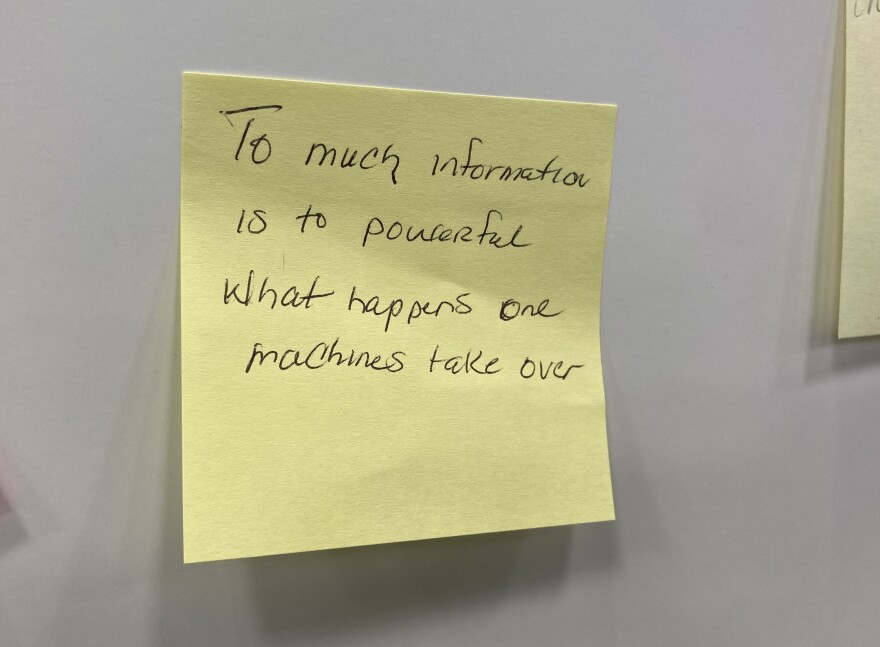 To much information
is to powerful
What happens one
machines take over